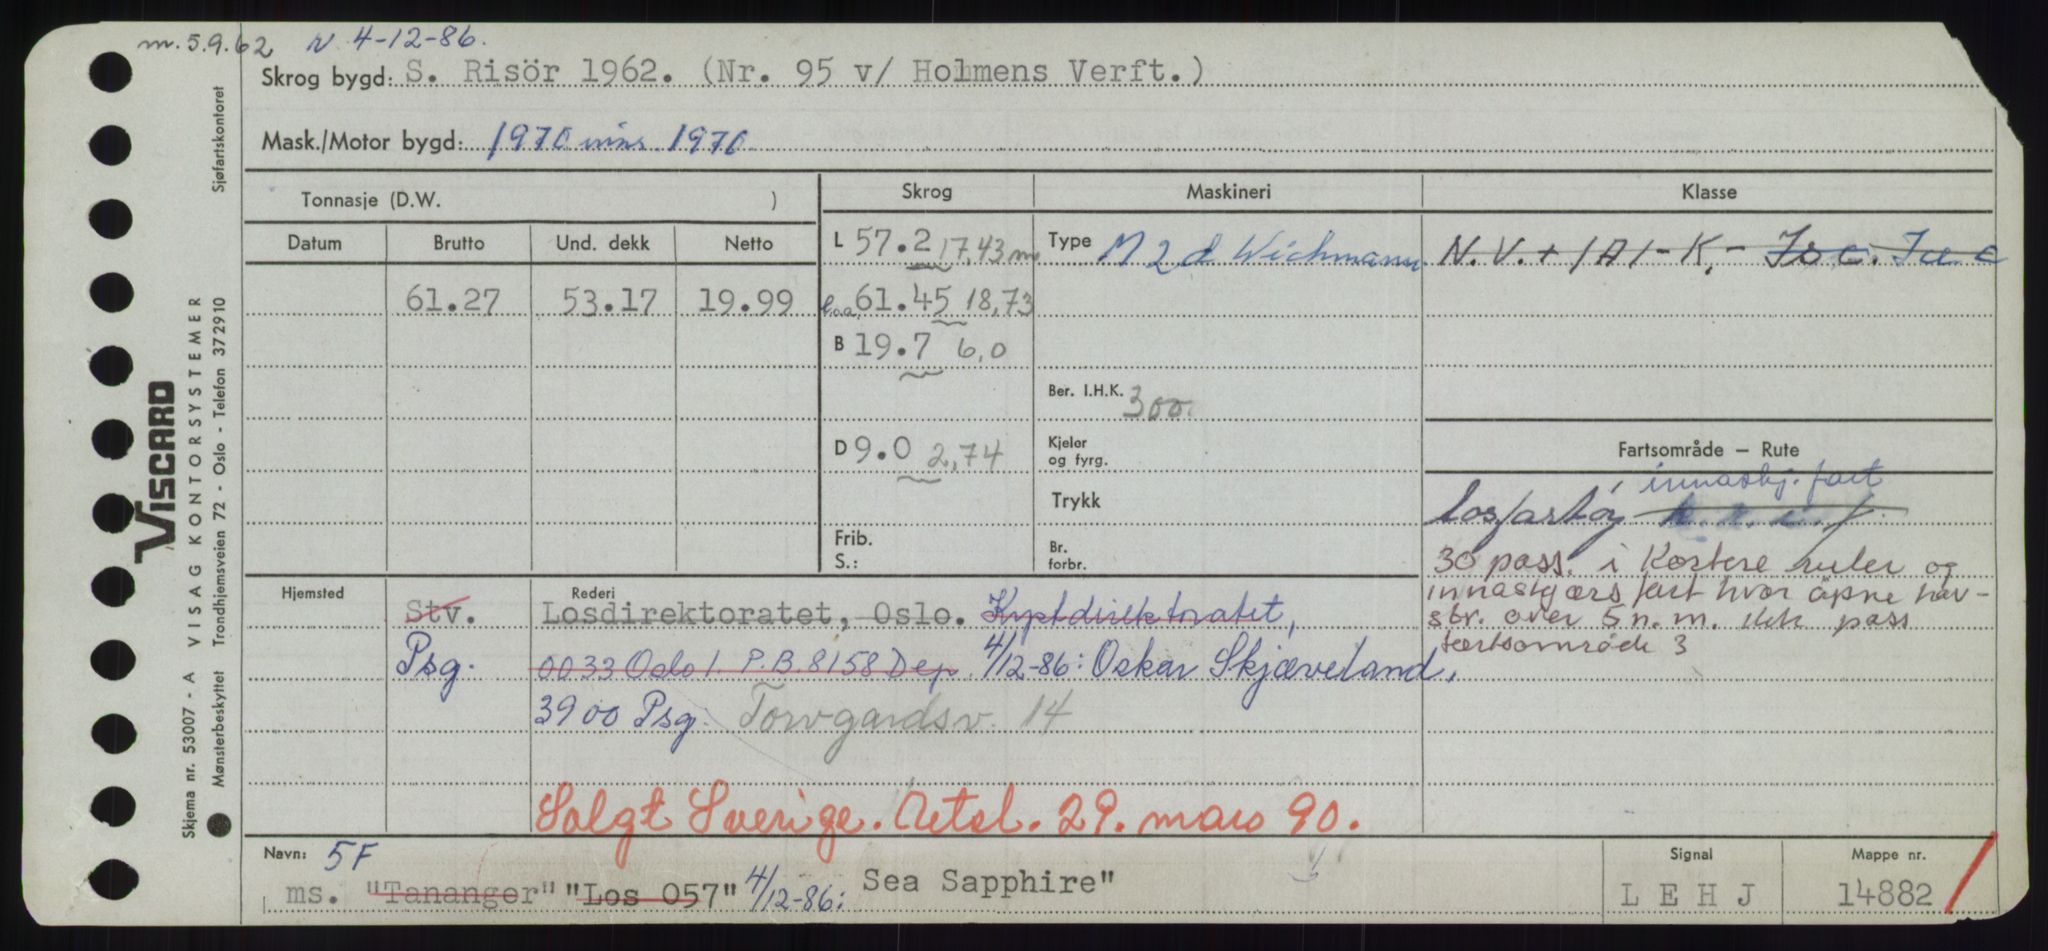 m. 5.9.62 N 4-12-86.
Skrog bygd: S. Risör 1962. (Nr. 95 v/ Holmens Verft.)
Mask./Motor bygd: 1970 inns 1970
Tonnasje (D.W. )
Skrog
Maskineri
Klasse
Datum
Brutto
Und. dekk
Netto
L 57.2 17,43 m
Type M 2 d Wichmann
N.V. + 1A1 - K, - Is C. Ice C
61.27
53.17
19.99
loa 61.45 18,73
B 19.7 6,0
Ber. I.H.K. 300
D 9.0 2,74
Kjeler
og fyrg.
Trykk
Frib.
S.:
Br.
forbr.
Fartsområde – Rute
innaskj. fart
Losfartöy
30 pass. i kortere ruter og
innaskjærs fart hvor åpne hav-
str. over 5 n.m. ikke pass
fartsområde 3
Hjemsted
Stv.
Psg.
Rederi
Losdirektoratet, Oslo. Kystdirektoratet,
0033 Oslo 1. P.B. 8158 Dep 4/12-86: Oskar Skjæveland,
3900 Psg. Torvgardsv. 14
Solgt Sverige. Utsl. 29. mars 90.
Navn: 5F
ms. "Tananger" "Los 057" 4/12-86: Sea Sapphire"
Signal
L E H J
Mappe nr.
14882
VISCARD
Skjema nr. 53007 - A VISAG KONTORSYSTEMER
Mønsterbeskyttet Trondhjemsveien 72 - Oslo - Telefon 372910 Sjøfartskontoret